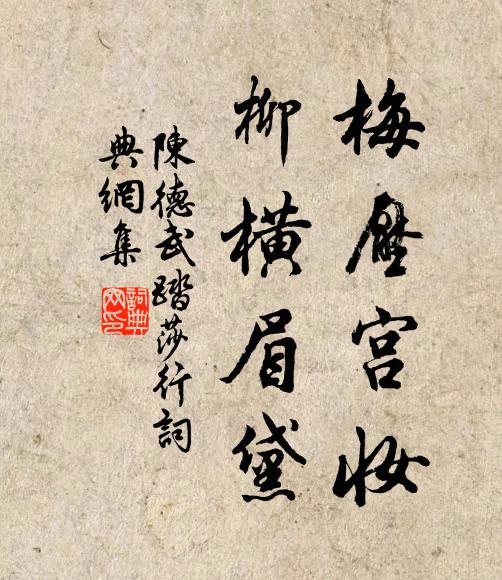 梅壓宮妝
柳橫眉黛
陳德武踏莎行詞
典網集
詞典
网印